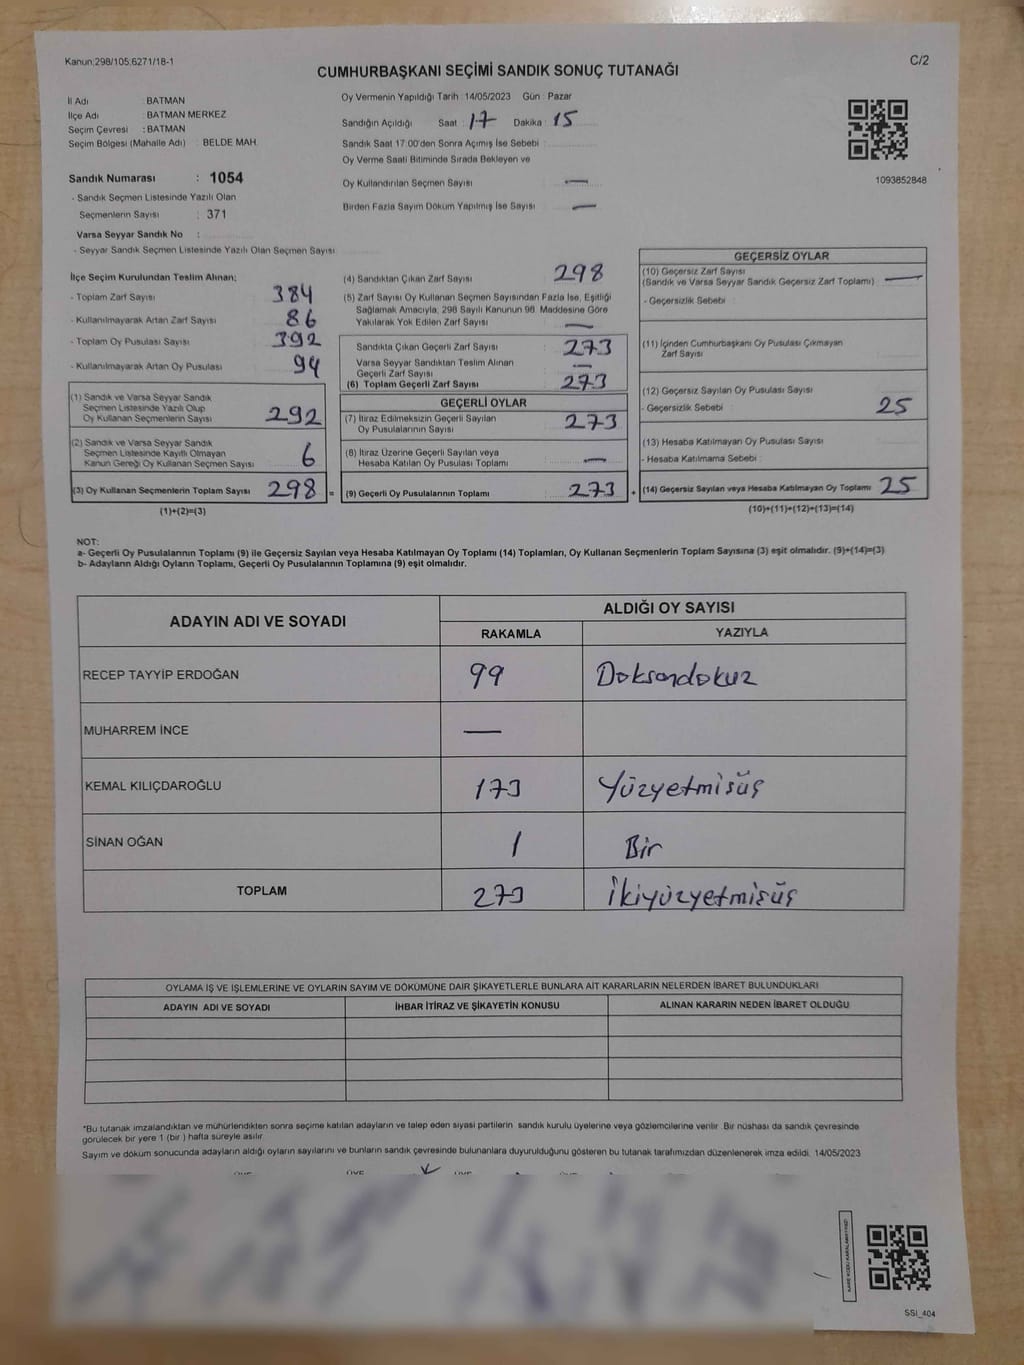 Kanun:298/105;6271/18-1
C/2
CUMHURBAŞKANI SEÇİMİ SANDIK SONUÇ TUTANAĞI
İl Adı : BATMAN
İlçe Adı : BATMAN MERKEZ
Seçim Çevresi : BATMAN
Seçim Bölgesi (Mahalle Adı) : BELDE MAH.
Sandık Numarası : 1054
- Sandık Seçmen Listesinde Yazılı Olan
Seçmenlerin Sayısı : 371
Varsa Seyyar Sandık No :
- Seyyar Sandık Seçmen Listesinde Yazılı Olan Seçmen Sayısı
Oy Vermenin Yapıldığı Tarih :14/05/2023 Gün : Pazar
Sandığın Açıldığı Saat : 17 Dakika : 15
Sandık Saat 17:00'den Sonra Açımış İse Sebebi :
Oy Verme Saati Bitiminde Sırada Bekleyen ve
Oy Kullandırılan Seçmen Sayısı : —
Birden Fazla Sayım Döküm Yapılmış İse Sayısı : —
1093852848
İlçe Seçim Kurulundan Teslim Alınan;
- Toplam Zarf Sayısı : 384
- Kullanılmayarak Artan Zarf Sayısı : 86
- Toplam Oy Pusulası Sayısı : 392
- Kullanılmayarak Artan Oy Pusulası : 94
(1) Sandık ve Varsa Seyyar Sandık
Seçmen Listesinde Yazılı Olup
Oy Kullanan Seçmenlerin Sayısı : 292
(2) Sandık ve Varsa Seyyar Sandık
Seçmen Listesinde Kayıtlı Olmayan
Kanun Gereği Oy Kullanan Seçmen Sayısı : 6
(3) Oy Kullanan Seçmenlerin Toplam Sayısı : 298 =
(1)+(2)=(3)
(4) Sandıktan Çıkan Zarf Sayısı : 298
(5) Zarf Sayısı Oy Kullanan Seçmen Sayısından Fazla İse, Eşitliği
Sağlamak Amacıyla, 298 Sayılı Kanunun 98. Maddesine Göre
Yakılarak Yok Edilen Zarf Sayısı : —
Sandıkta Çıkan Geçerli Zarf Sayısı : 273
Varsa Seyyar Sandıktan Teslim Alınan
Geçerli Zarf Sayısı : —
(6) Toplam Geçerli Zarf Sayısı : 273
GEÇERLİ OYLAR
(7) İtiraz Edilmeksizin Geçerli Sayılan
Oy Pusulalarının Sayısı : 273
(8) İtiraz Üzerine Geçerli Sayılan veya
Hesaba Katılan Oy Pusulası Toplamı : —
(9) Geçerli Oy Pusulalarının Toplamı : 273 +
GEÇERSİZ OYLAR
(10) Geçersiz Zarf Sayısı
(Sandık ve Varsa Seyyar Sandık Geçersiz Zarf Toplamı) : —
- Geçersizlik Sebebi :
(11) İçinden Cumhurbaşkanı Oy Pusulası Çıkmayan
Zarf Sayısı
(12) Geçersiz Sayılan Oy Pusulası Sayısı :
- Geçersizlik Sebebi : 25
(13) Hesaba Katılmayan Oy Pusulası Sayısı :
- Hesaba Katılmama Sebebi :
(14) Geçersiz Sayılan veya Hesaba Katılmayan Oy Toplamı : 25
(10)+(11)+(12)+(13)=(14)
NOT:
a- Geçerli Oy Pusulalarının Toplamı (9) ile Geçersiz Sayılan veya Hesaba Katılmayan Oy Toplamı (14) Toplamları, Oy Kullanan Seçmenlerin Toplam Sayısına (3) eşit olmalıdır. (9)+(14)=(3)
b- Adayların Aldığı Oyların Toplamı, Geçerli Oy Pusulalarının Toplamına (9) eşit olmalıdır.
ADAYIN ADI VE SOYADI ALDIĞI OY SAYISI
RAKAMLA YAZIYLA
RECEP TAYYİP ERDOĞAN 99 Doksandokuz
MUHARREM İNCE —
KEMAL KILIÇDAROĞLU 173 Yüzyetmişüç
SİNAN OĞAN 1 Bir
TOPLAM 273 İkiyüzyetmişüç
OYLAMA İŞ VE İŞLEMLERİNE VE OYLARIN SAYIM VE DÖKÜMÜNE DAİR ŞİKAYETLERLE BUNLARA AİT KARARLARIN NELERDEN İBARET BULUNDUKLARI
ADAYIN ADI VE SOYADI İHBAR İTİRAZ VE ŞİKAYETİN KONUSU ALINAN KARARIN NEDEN İBARET OLDUĞU
*Bu tutanak imzalandıktan ve mühürlendikten sonra seçime katılan adayların ve talep eden siyasi partilerin sandık kurulu üyelerine veya gözlemcilerine verilir. Bir nüshası da sandık çevresinde
görülecek bir yere 1 (bir ) hafta süreyle asılır.
Sayım ve döküm sonucunda adayların aldığı oyların sayılarını ve bunların sandık çevresinde bulunanlara duyurulduğunu gösteren bu tutanak tarafımızdan düzenlenerek imza edildi. 14/05/2023
KARE KODU KARALAMAYINIZ!
SSI_404